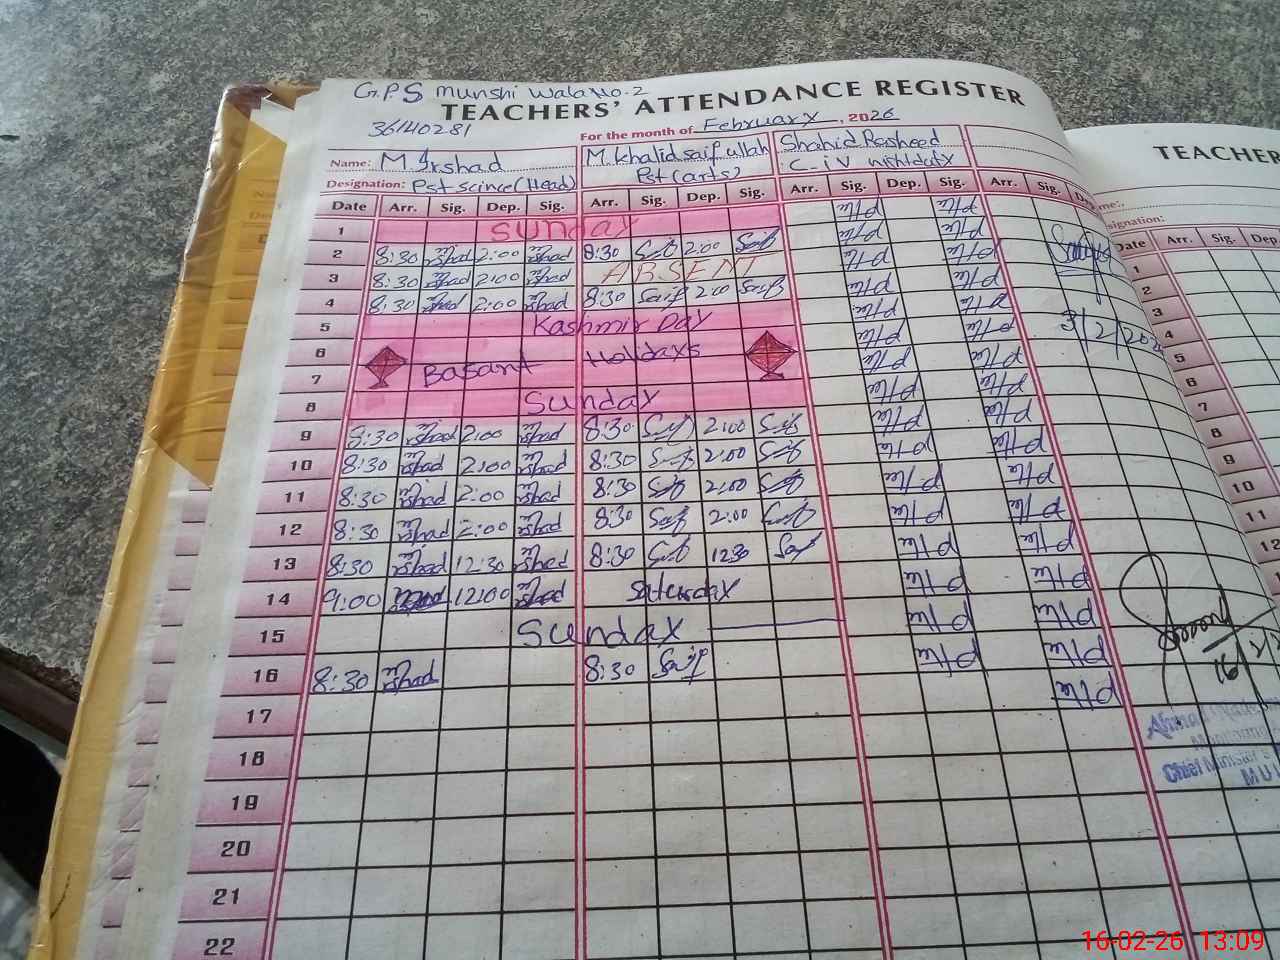 G.P.S Munshi Wala No.2
TEACHERS' ATTENDANCE REGISTER
36140281
For the month of February, 2026
Name: M. Irshad M. Khalid saif ullah Shahid Rasheed
Designation: Pst scince (Head) Pst (arts) C.iV
Date Arr. Sig. Dep. Sig. Arr. Sig. Dep. Sig. Arr. Sig. Dep. Sig. Arr. Sig. Dep.
1 Sunday
2 8:30 M Irshad 2:00 M Irshad 8:30 Saif 2:00 Saif
3 8:30 M Irshad 2:00 M Irshad ABSENT
4 8:30 M Irshad 2:00 M Irshad 8:30 Saif 2:00 Saif
5 Kashmir Day
6 Basant Holidays
7
8 Sunday
9 8:30 M Irshad 2:00 M Irshad 8:30 Saif 2:00 Saif
10 8:30 M Irshad 2:00 M Irshad 8:30 Saif 2:00 Saif
11 8:30 M Irshad 2:00 M Irshad 8:30 Saif 2:00 Saif
12 8:30 M Irshad 2:00 M Irshad 8:30 Saif 2:00 Saif
13 8:30 M Irshad 12:30 M Irshad 8:30 Saif 12:30 Saif
14 9:00 12:00 M Irshad Saturday
15 Sunday
16 8:30 M Irshad 8:30 Saif
17
18
19
20
21
22
3/2/202
16/2/2
Ahmad
Chief Minister
MUL
TEACHER
Designation:
Date Arr. Sig. Dep
1
2
3
4
5
6
7
8
9
10
11
12
16-02-26 13:09